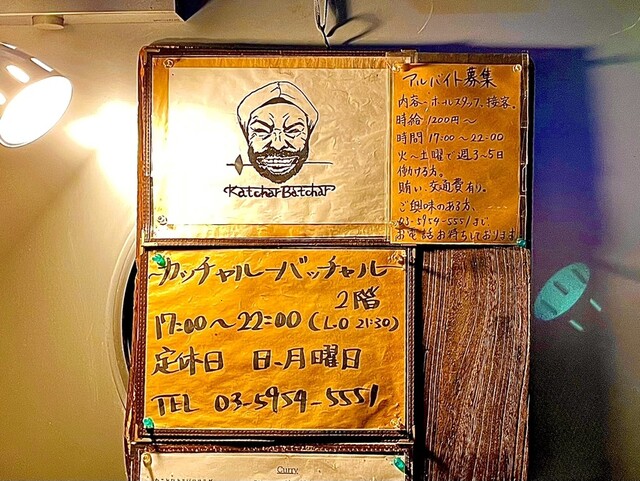 Katchar Batchar
アルバイト募集
内容→ホールスタッフ、接客、
時給 1200円〜
時間 17:00〜22:00
火〜土曜で週3〜5日
働ける方。
賄い、交通費有り。
ご興味のある方、
03-5954-5551まで
お電話お待ちしております
カッチャルーバッチャル
2階
17:00〜22:00 (L.O 21:30)
定休日 日、月曜日
TEL 03-5954-5551
Curry